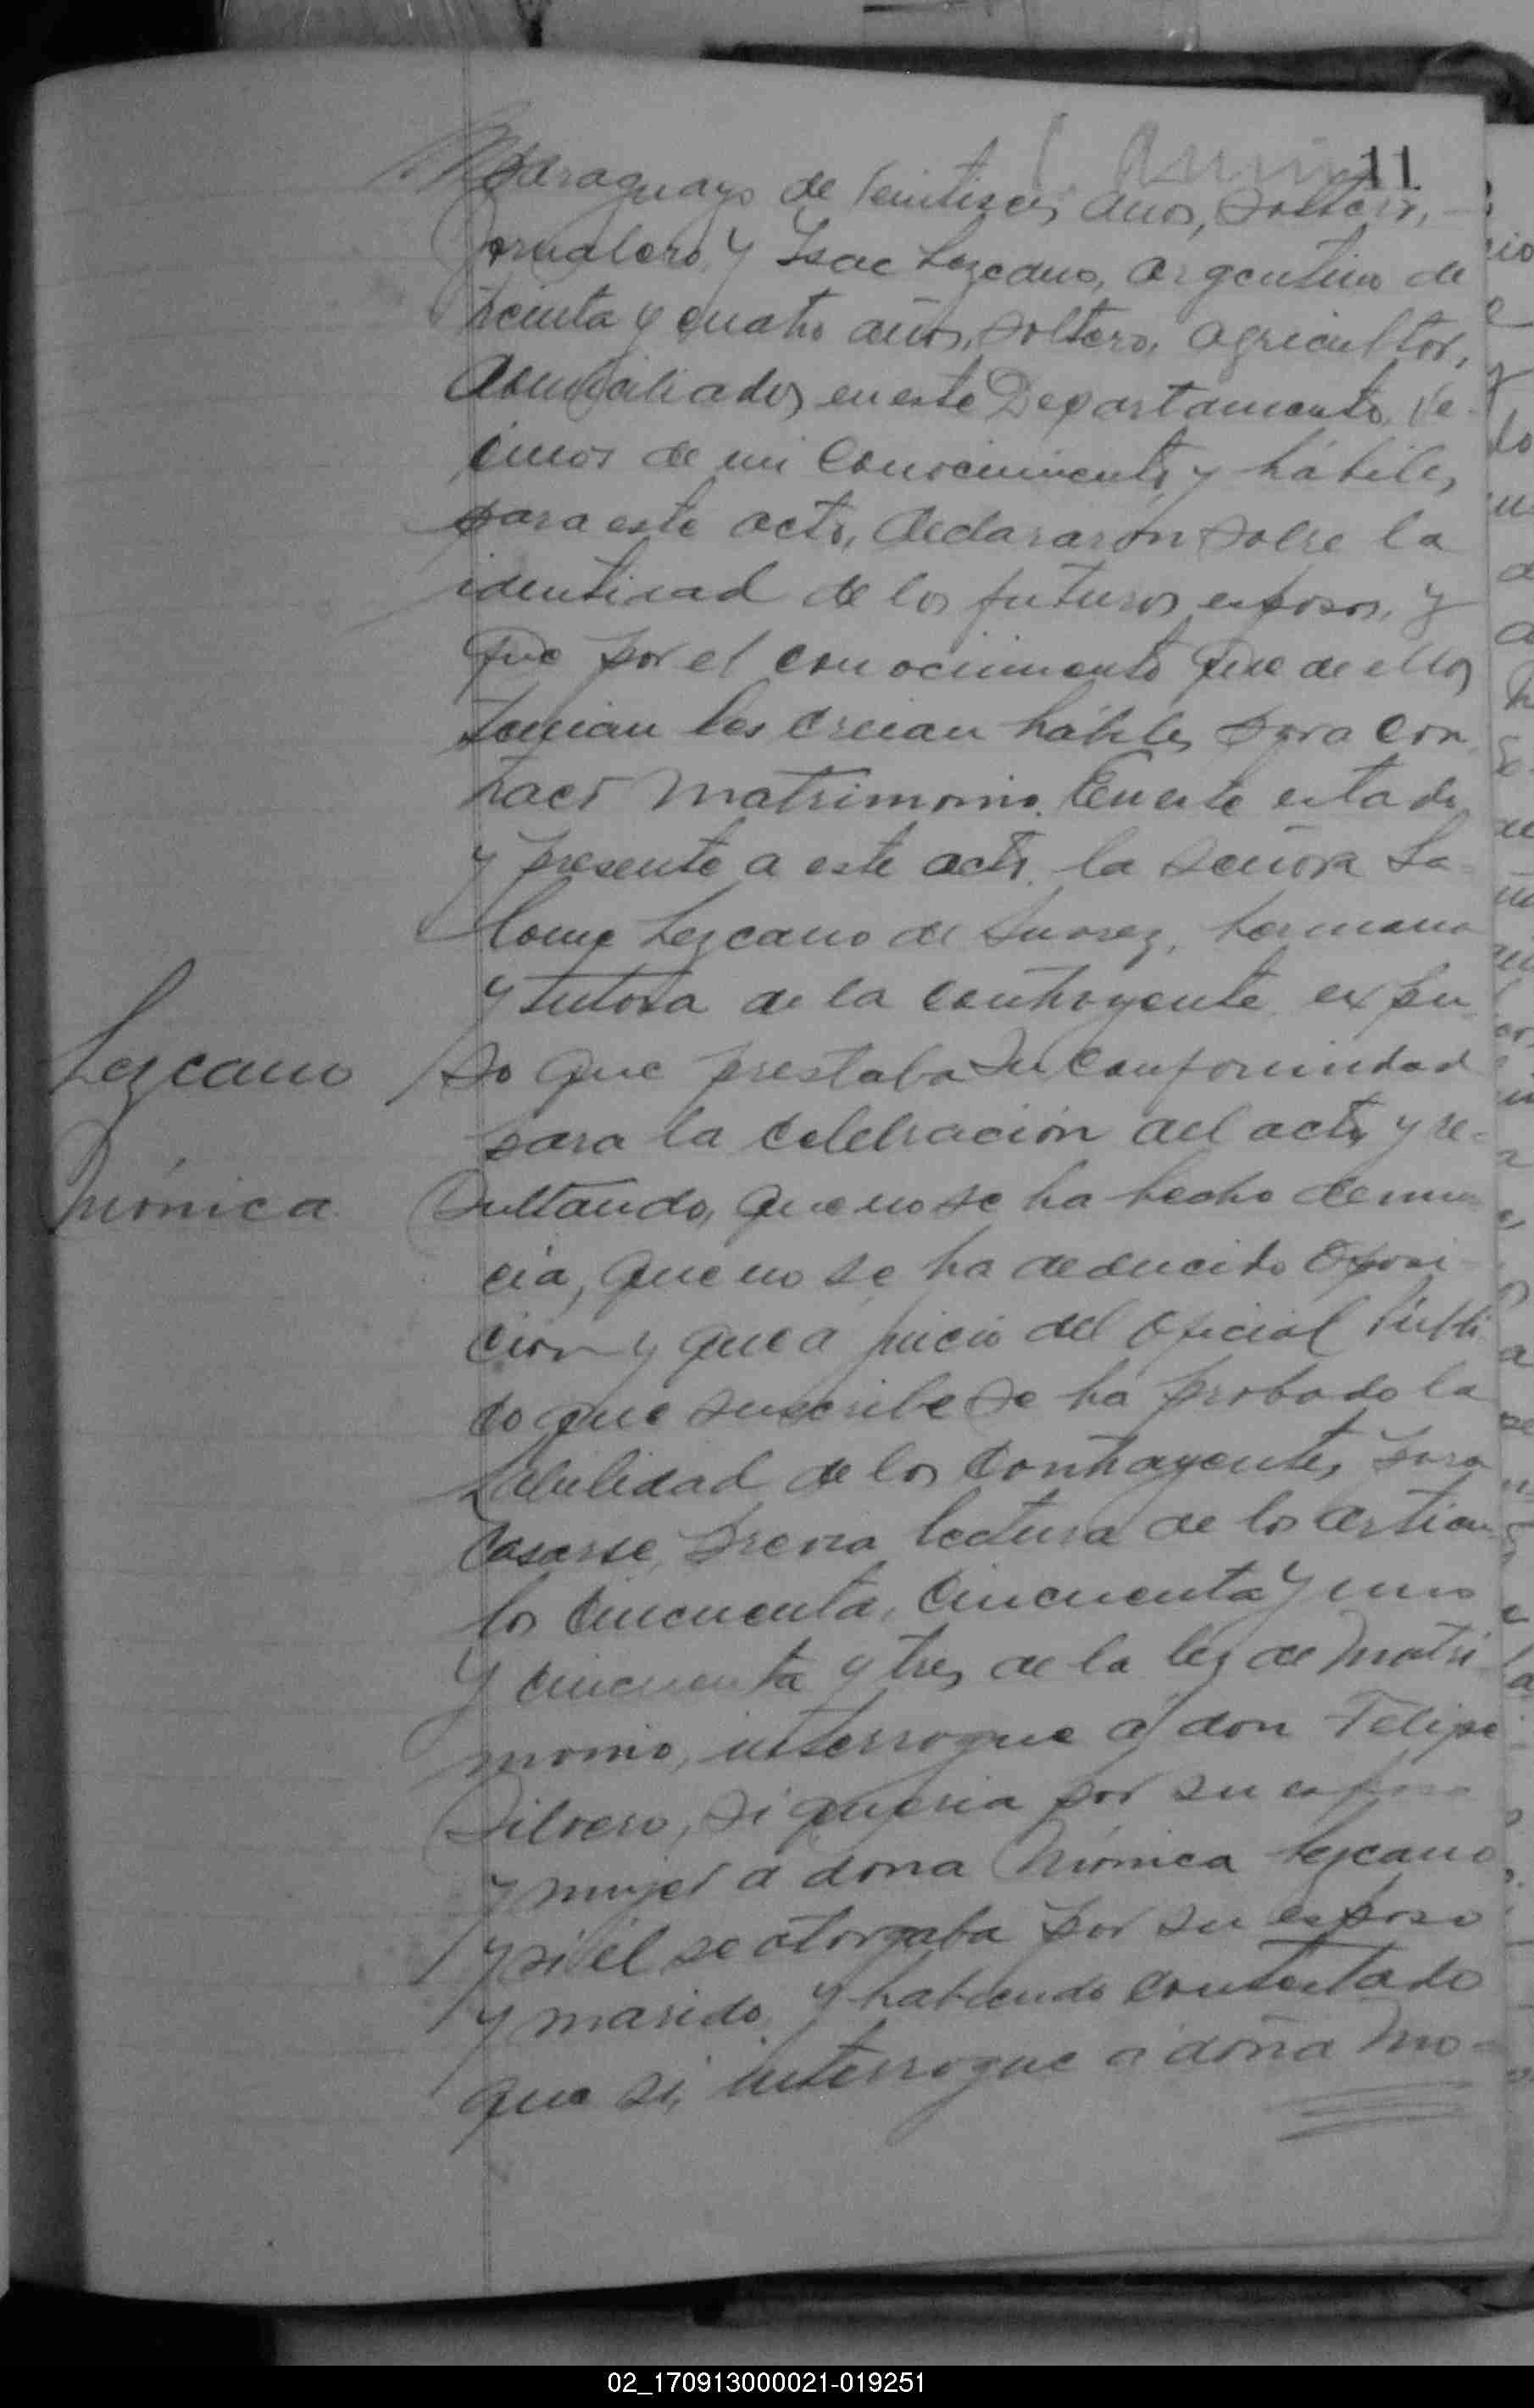 11
Paraguayo de veintiseis años, soltero,
Jornalero, y Isac Lezcano, argentino de
treinta y cuatro años, soltero, agricultor,
domiciliados en este Departamento, ve-
cinos de mi conocimiento, y hábiles
para este acto, declararon sobre la
identidad de los futuros esposos, y
que por el conocimiento que de ellos
tenian los creian hábiles para con
traer matrimonio. En este estado
y presente a este acto, la señora Sa-
lome Lezcano de Suarez, hermana
y tutora de la contrayente, expu
Lezcano
so que prestaba su conformidad
para la celebración del acto, y re-
Mónica
sultando, que no se ha hecho denun
cia, que no se ha deducido oposi-
cion y que a juicio del oficial Públi
co que suscribe se ha probado la
habilidad de los contrayentes para
casarse, previa lectura de los articu
los cincuenta, cincuenta y uno
y cincuenta y tres de la ley de matri
monio, interrogue a don Felipe
Silvero, si queria por su esposa
y mujer a doña Mónica Lezcano
y si el se otorgaba por su esposo
y marido, y habiendo contestado
que si, interrogue a doña Mó-
02_170913000021-019251